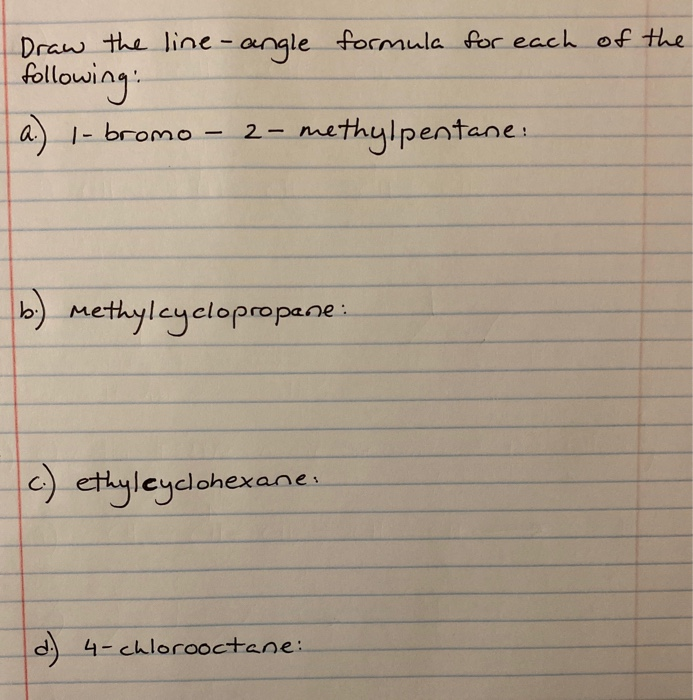 Draw the line-angle formula for each of the
following:
a.) 1-bromo - 2 - methylpentane:
b.) methylcyclopropane:
c.) ethylcyclohexane:
d.) 4-chlorooctane: